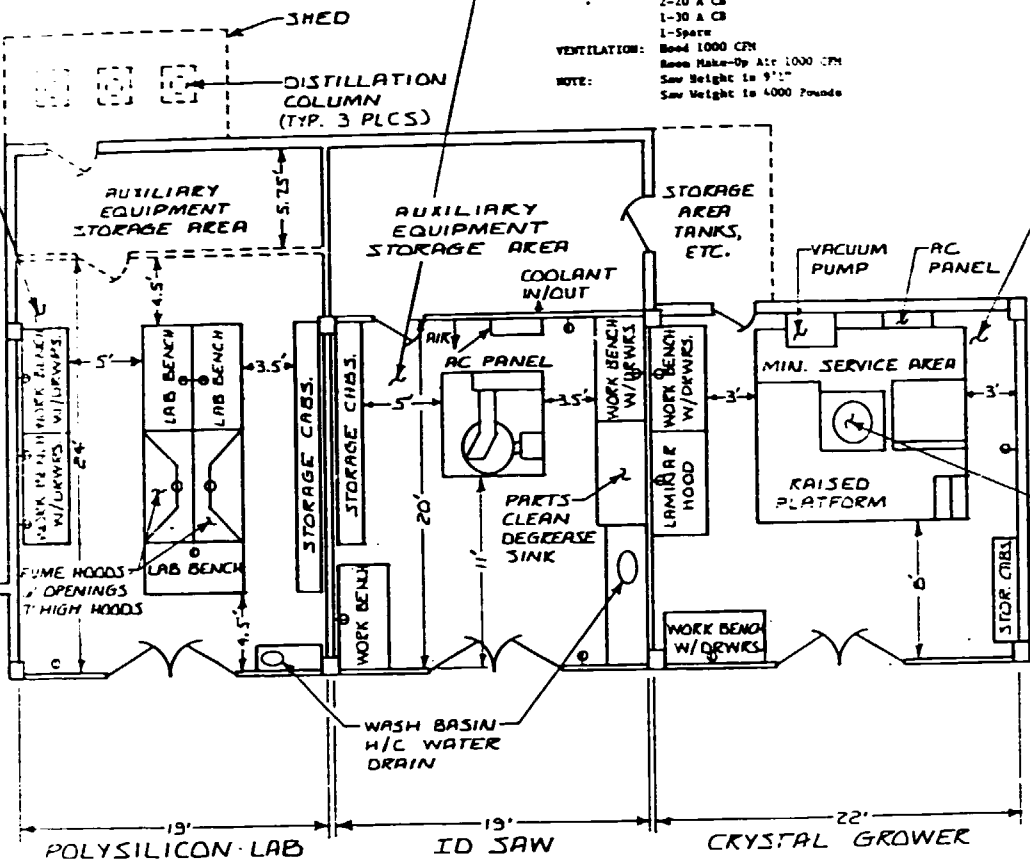 2-20 A CB
1-30 A CB
1-Spare
VENTILATION: Hood 1000 CFM
Room Make-Up Air 1000 CFM
NOTE: Saw Height is 9'1"
Saw Weight is 4000 Pounds
SHED
DISTILLATION
COLUMN
(TYP. 3 PLCS)
AUXILIARY
EQUIPMENT
STORAGE AREA
5.75'
AUXILIARY
EQUIPMENT
STORAGE AREA
STORAGE
AREA
TANKS,
ETC.
COOLANT
IN/OUT
VACUUM
PUMP
AC
PANEL
4.5'
WORK BENCH
W/DRWRS.
WORK BENCH
W/DRWRS.
24'
5'
LAB BENCH
LAB BENCH
3.5'
STORAGE CABS.
STORAGE CABS.
AIR
AC PANEL
5'
3.5'
WORK BENCH
W/DRWRS.
WORK BENCH
W/DRWRS.
3'
MIN. SERVICE AREA
3'
LAMINAR
HOOD
RAISED
PLATFORM
20'
11'
PARTS
CLEAN
DEGREASE
SINK
FUME HOODS
OPENINGS
HIGH HOODS
LAB BENCH
4.5'
WORK BENCH
WORK BENCH
W/DRWRS.
STOR. CABS.
WASH BASIN
H/C WATER
DRAIN
19'
19'
22'
POLYSILICON LAB
ID SAW
CRYSTAL GROWER